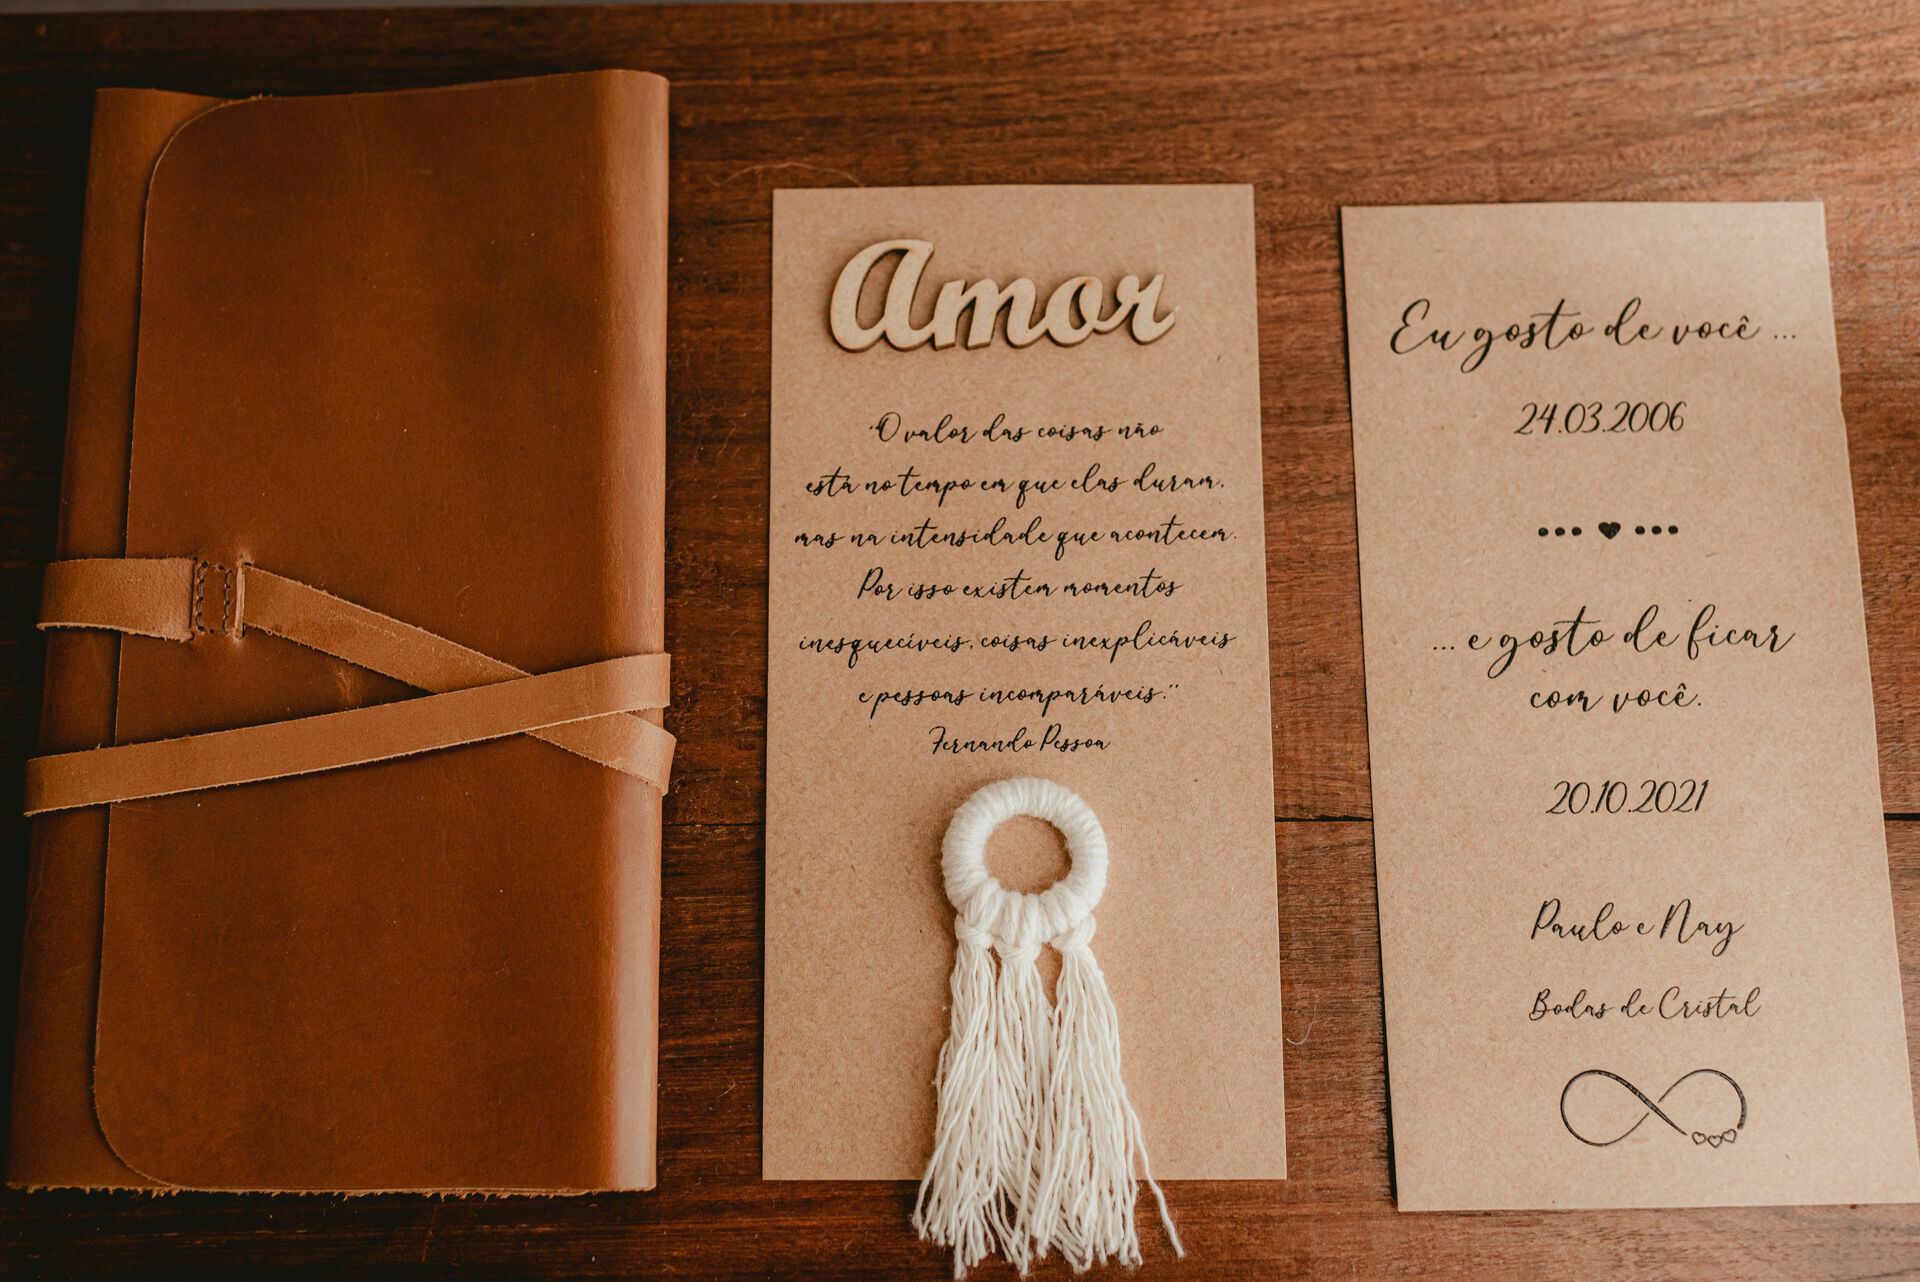 Amor
"O valor das coisas não
está no tempo em que elas duram,
mas na intensidade que acontecem.
Por isso existem momentos
inesquecíveis, coisas inexplicáveis
e pessoas incomparáveis."
Fernando Pessoa
Eu gosto de você ...
24.03.2006
... e gosto de ficar
com você.
20.10.2021
Paulo e Nay
Bodas de Cristal